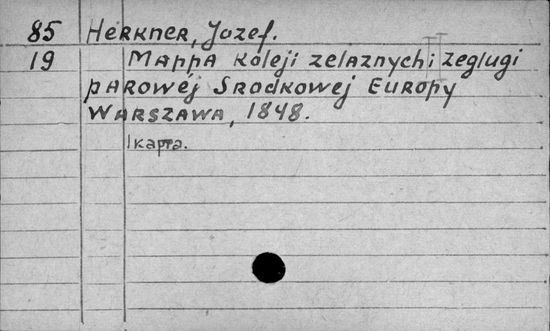 85 Herkner, Jozef.
19 Mappa koleji zelaznych i zeglugi
parowéj Srodkowej Europy
Warszawa, 1848.
1 karta.